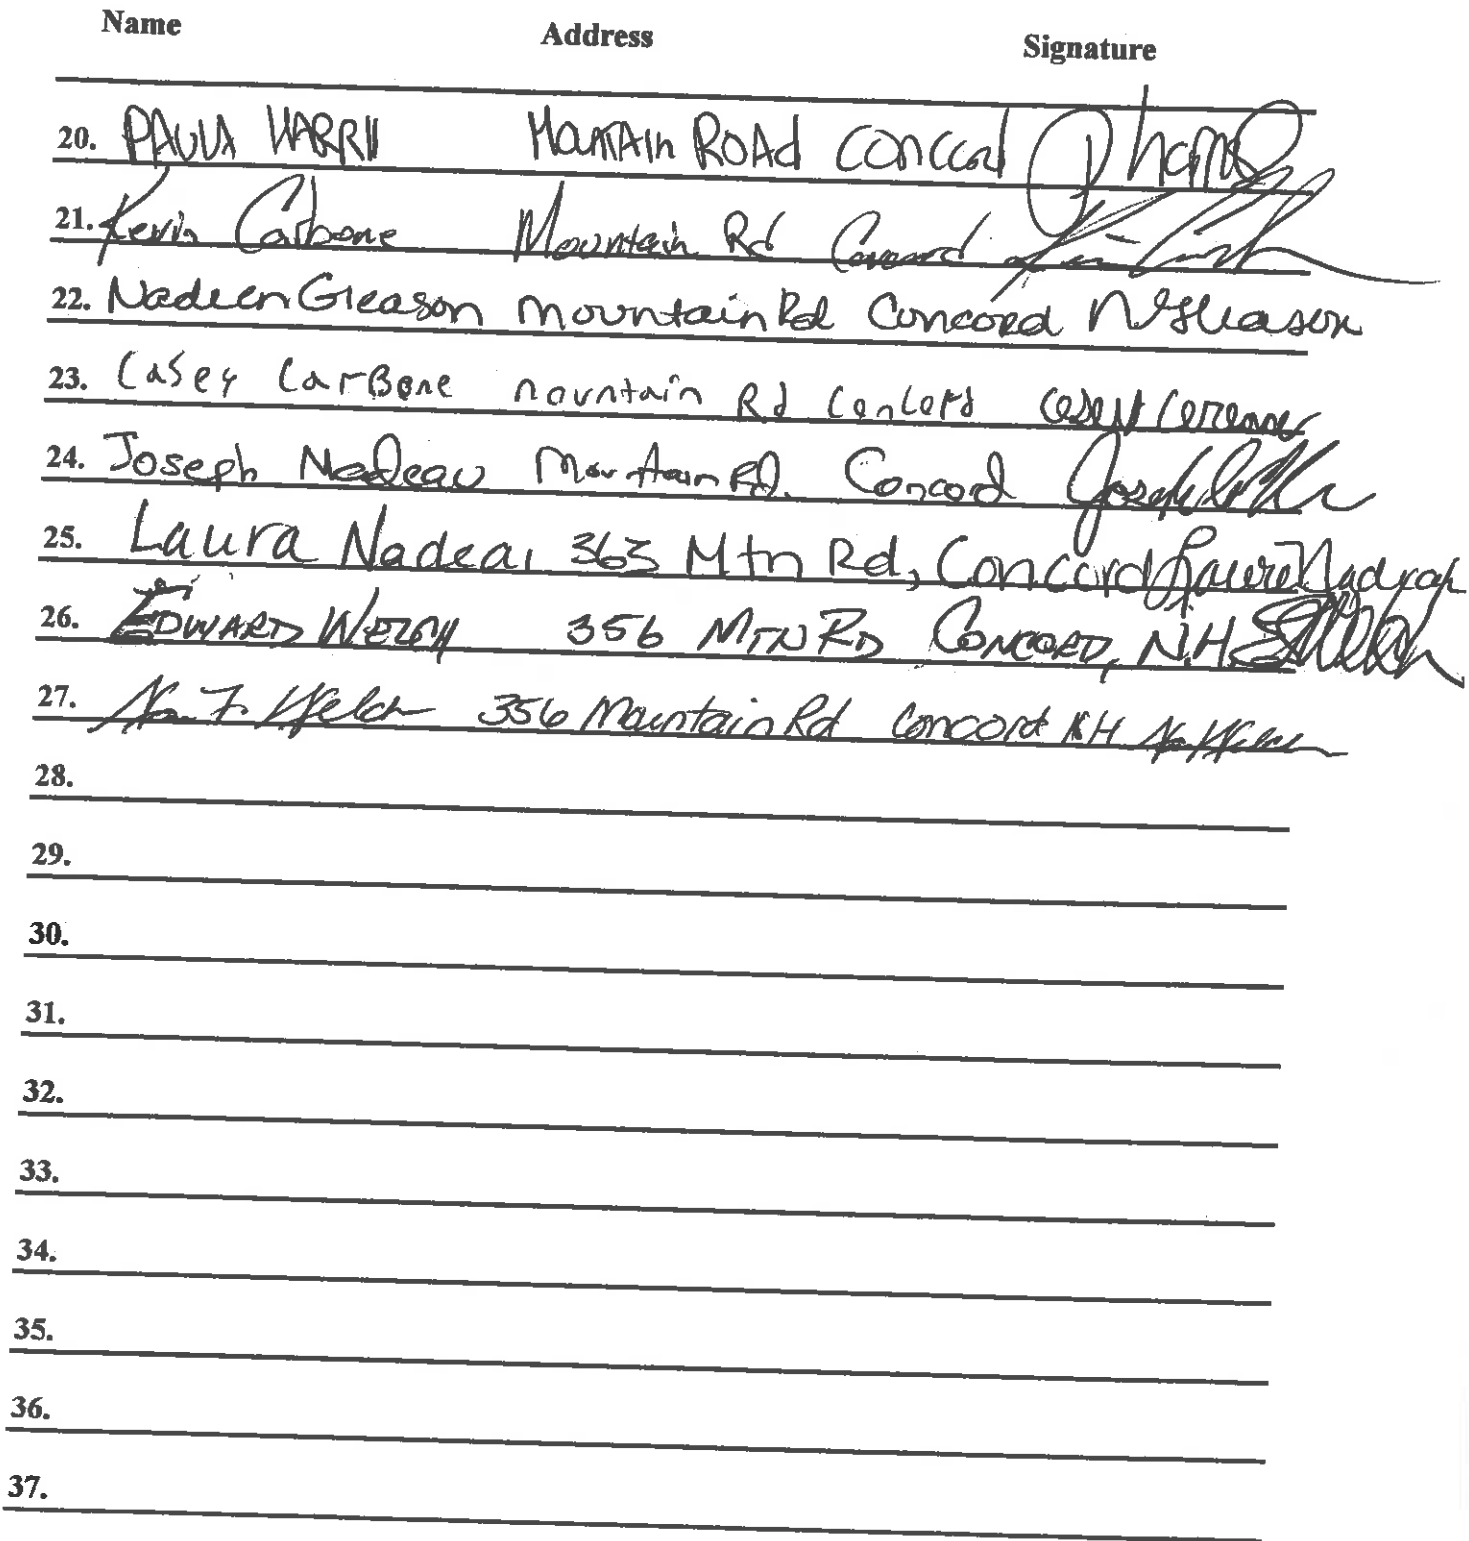 Name Address Signature
20. PAULA HARRII MOUNTAIN ROAD CONCORD P harris
21. Kevin Carbone Mountain Rd Concord
22. Nadeen Gleason Mountain Rd Concord N Gleason
23. Casey CarBone Mountain Rd Concord
24. Joseph Nadeau Mountain Rd. Concord Joseph
25. Laura Nadeau 363 Mtn Rd, Concord Laura Nadeau
26. EDWARD WELCH 356 MTN RD CONCORD, N.H.
27. F. Welch 356 Mountain Rd Concord NH
28.
29.
30.
31.
32.
33.
34.
35.
36.
37.